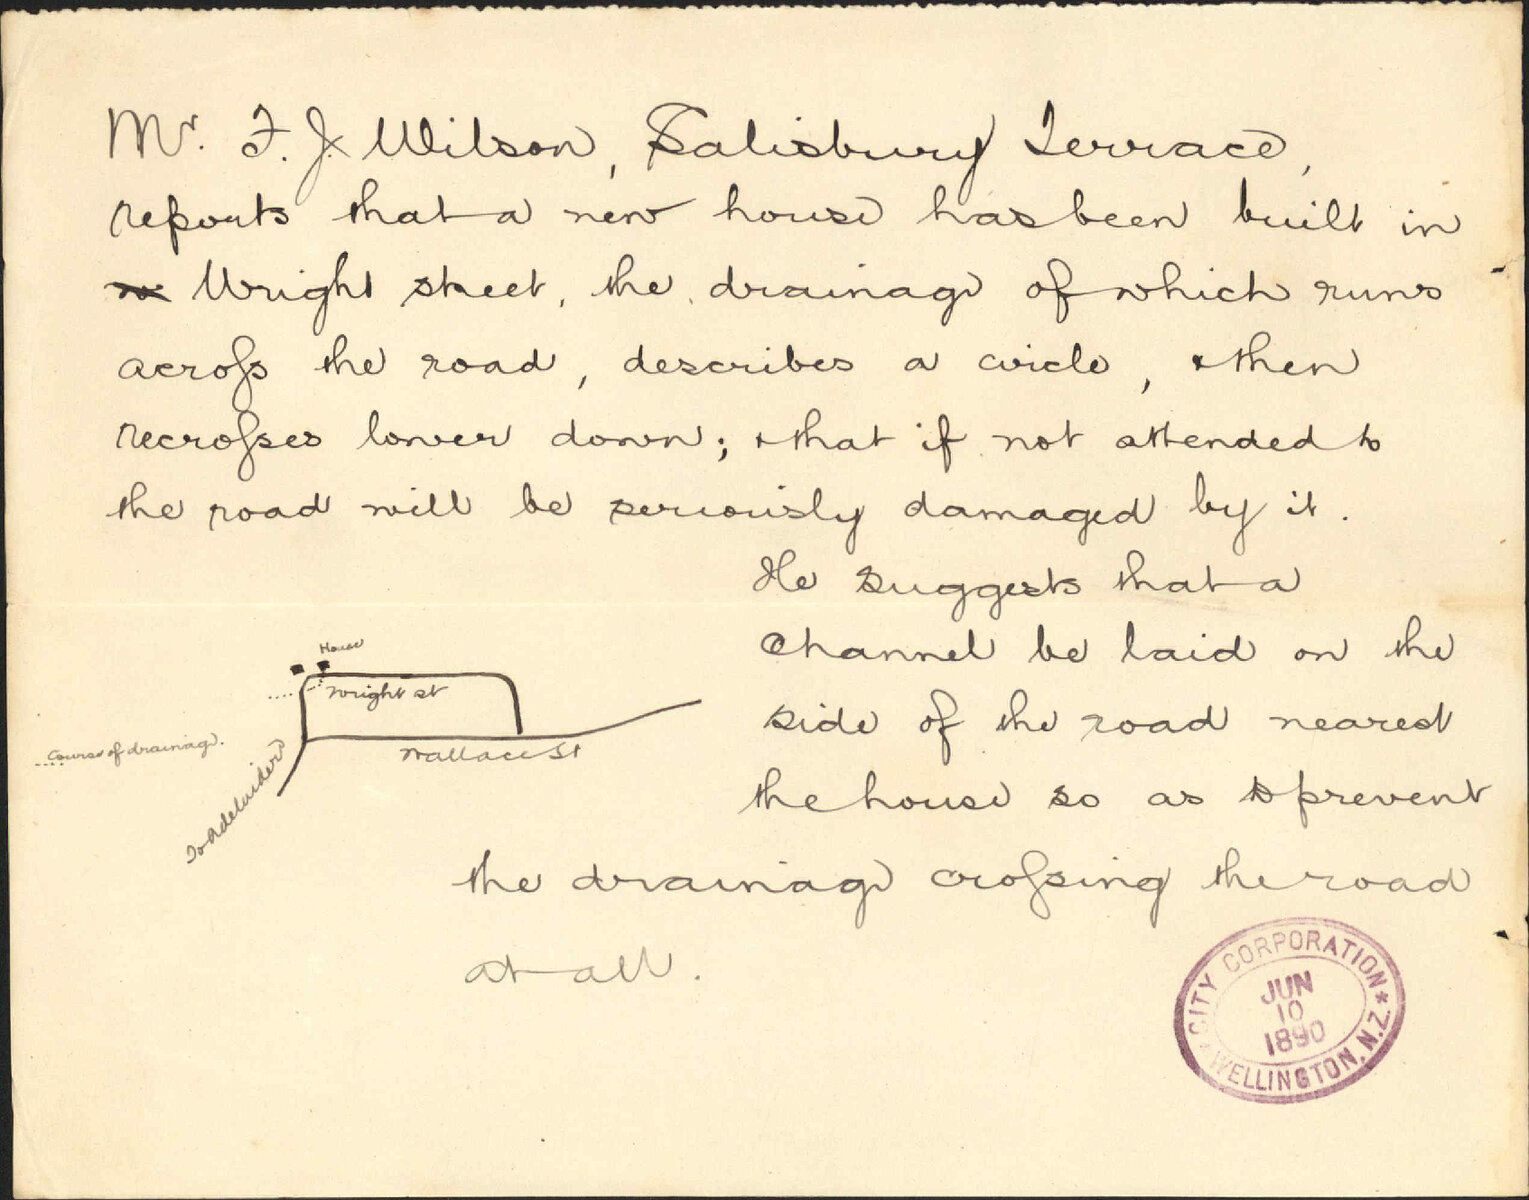 Mr. F. J. Wilson, Salisbury Terrace,
reports that a new house has been built in
Wright street, the drainage of which runs
across the road, describes a circle, & then
recrosses lower down; & that if not attended to
the road will be seriously damaged by it.
He suggests that a
Channel be laid on the
side of the road nearest
the house so as to prevent
the drainage crossing the road
at all.
House
Wright st
Wallace St
Course of drainage.
To Adelaide rd
CITY CORPORATION
JUN
10
1890
WELLINGTON, N.Z.